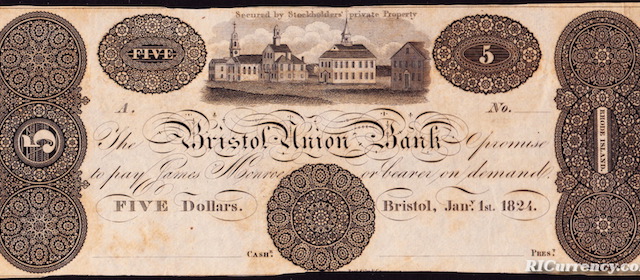 Secured by Stockholders' private Property
FIVE
5
A.
No.
The Bristol Union Bank promise
to pay James Monroe or bearer on demand
FIVE Dollars. Bristol, Jany. 1st. 1824.
Cashr.
Prest.
5
RHODE ISLAND.
RICurrency.co